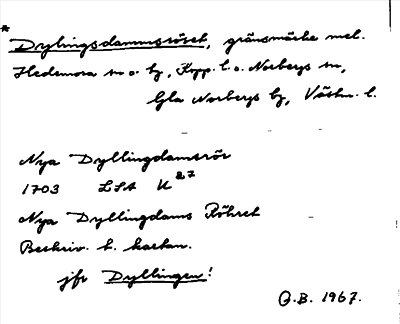 * Dylingsdammsröset, gränsmärke mel.
Hedemora sn o. by, Kopp. l. o. Norbergs sn,
Gla Norbergs by, Västm. l.
Nya Dyllingdamsrör
1703 LSA U 27
Nya Dyllingdams Röhset
Beskriv. t. kartan.
jfr Dyllingen!
O.B. 1967.